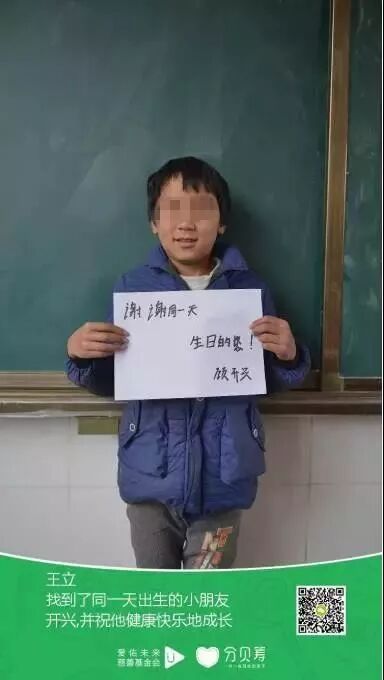 谢谢同一天
生日的您！
顾开兴
王立
找到了同一天出生的小朋友
开兴,并祝他健康快乐地成长
爱佑未来
慈善基金会
分贝筹